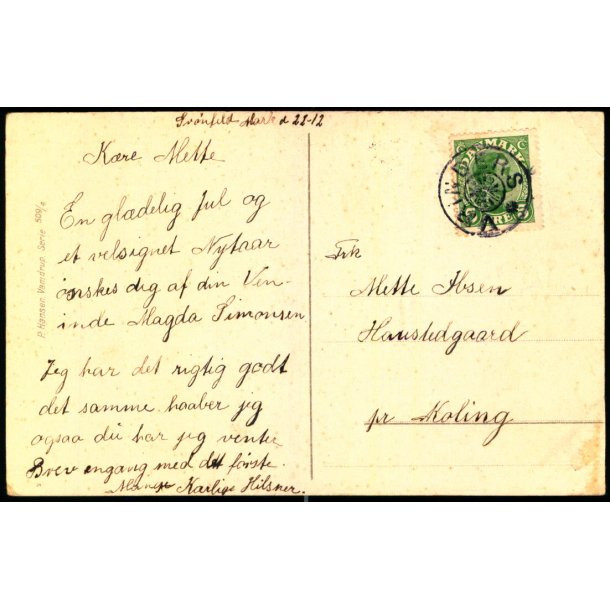 Mark d 22-12
Kære Mette
En glædelig Jul og
et velsignet Nytaar
ønskes dig af din Ven-
inde Magda Simonsen
Jeg har det rigtig godt
det samme haaber jeg
ogsaa du har jeg venter
Brev engang med det første.
Mange Kærlige Hilsner.
P. Hansen, Vamdrup. Serie 509/4
DANMARK
5 ØRE 5
Frk
Mette Ibsen
Haustedgaard
pr Kolding